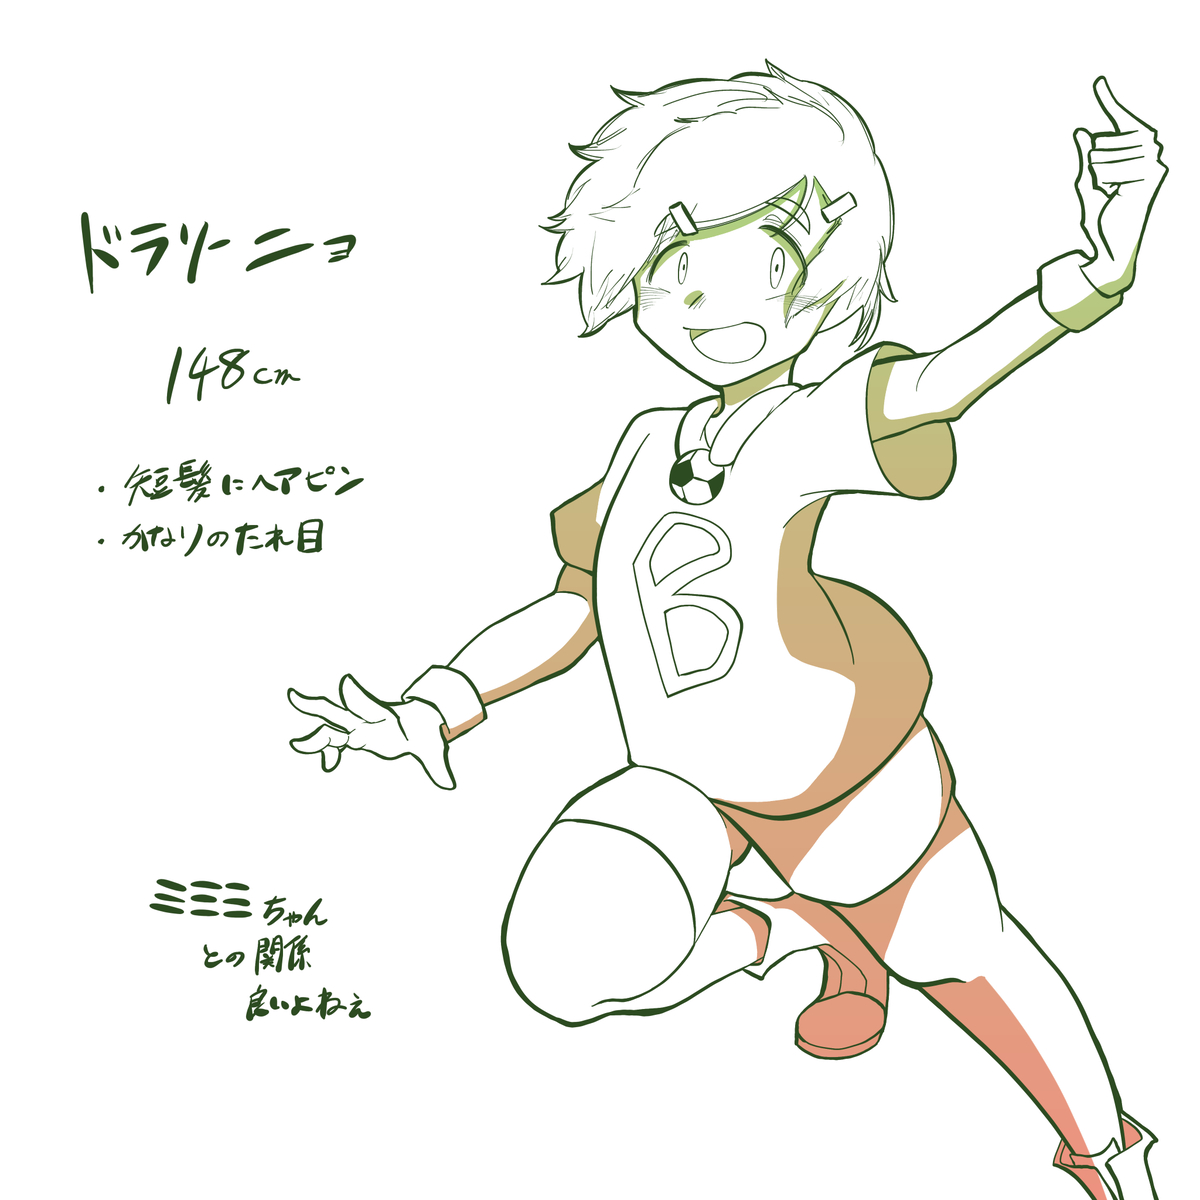 ドラリーニョ
148cm
・短髪にヘアピン
・かなりのたれ目
B
ミミミちゃん
との関係
良いよねえ